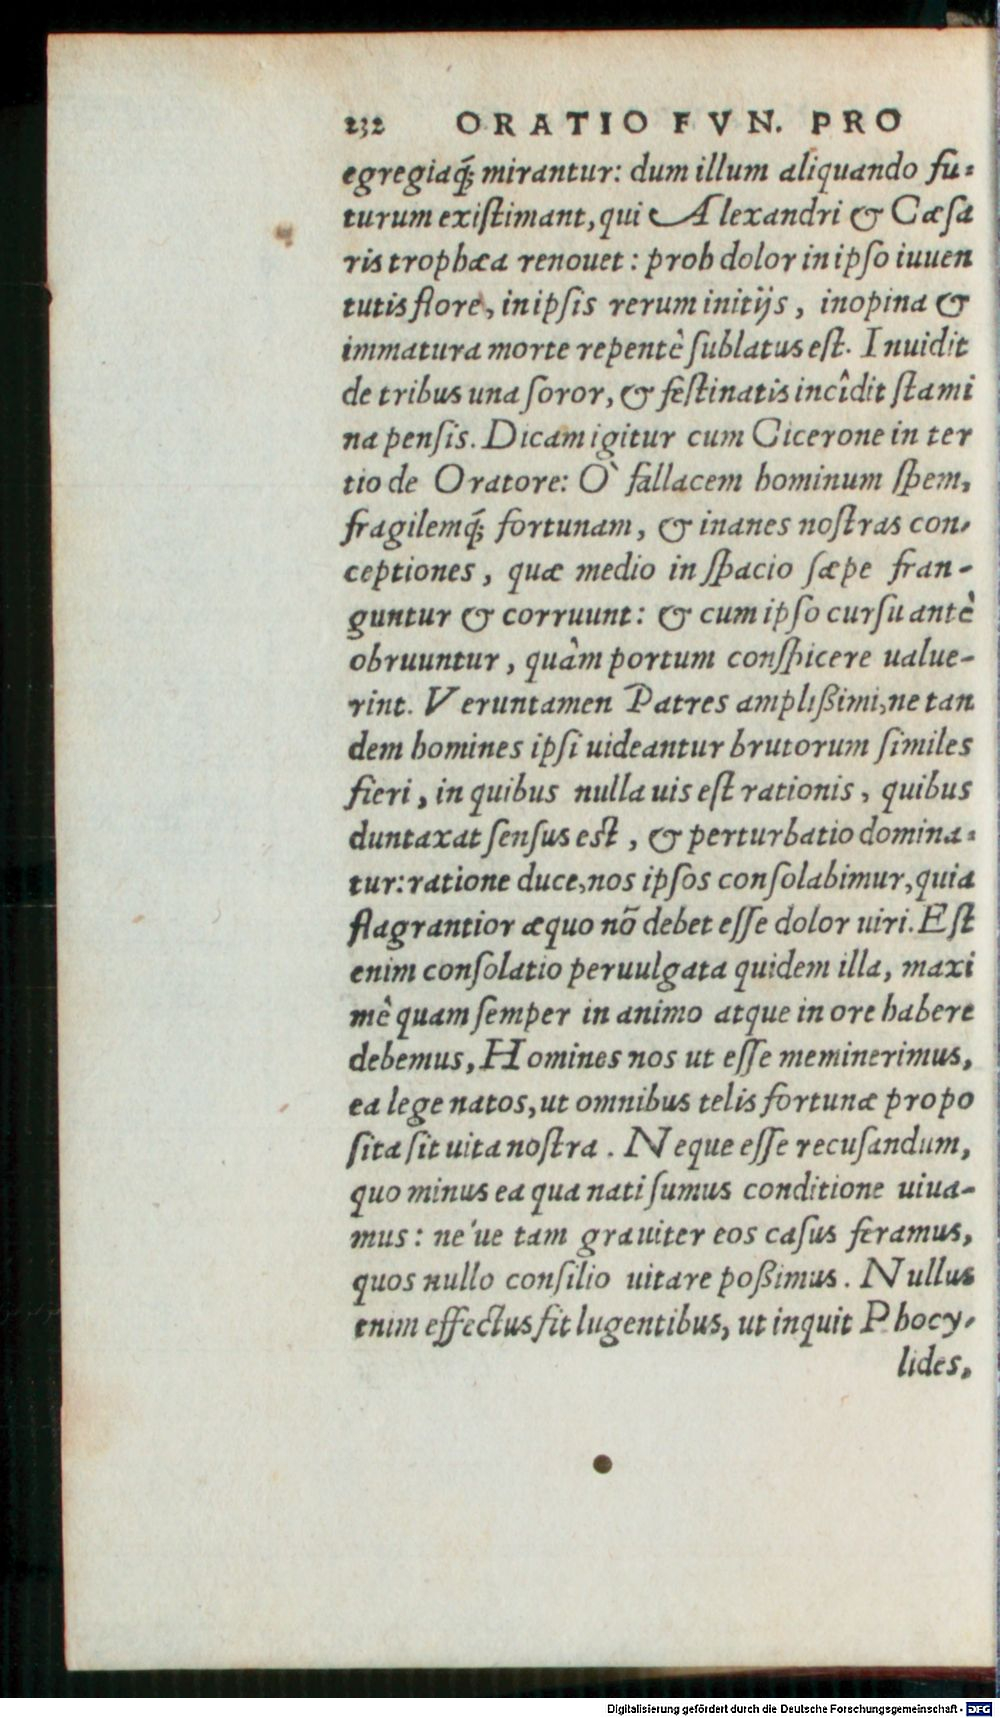 232 ORATIO FVN. PRO
egregiaq́; mirantur: dum illum aliquando fu-
turum exiſtimant, qui Alexandri & Cæſa
ris trophæa renouet: proh dolor in ipſo iuuen
tutis flore, in ipſis rerum initijs, inopina &
immatura morte repentè ſublatus eſt. Inuidit
de tribus una ſoror, & feſtinatis incîdit ſtami
na penſis. Dicam igitur cum Cicerone in ter
tio de Oratore: Ò fallacem hominum ſpem,
fragilemq́; fortunam, & inanes noſtras con-
ceptiones, quæ medio in ſpacio ſæpe fran-
guntur & corruunt: & cum ipſo curſu antè
obruuntur, quàm portum conſpicere ualue-
rint. Veruntamen Patres amplißimi, ne tan
dem homines ipſi uideantur brutorum ſimiles
fieri, in quibus nulla uis eſt rationis, quibus
duntaxat ſenſus eſt, & perturbatio domina-
tur: ratione duce, nos ipſos conſolabimur, quia
flagrantior æquo nõ debet eſſe dolor uiri. Eſt
enim conſolatio peruulgata quidem illa, maxi
mè quam ſemper in animo atque in ore habere
debemus, Homines nos ut eſſe meminerimus,
ea lege natos, ut omnibus telis fortunæ propo
ſita ſit uita noſtra. Neque eſſe recuſandum,
quo minus ea qua nati ſumus conditione uiua-
mus: ne'ue tam grauiter eos caſus feramus,
quos nullo conſilio uitare poßimus. Nullus
enim effectus fit lugentibus, ut inquit Phocy-
lides,
Digitalisierung gefördert durch die Deutsche Forschungsgemeinschaft - DFG